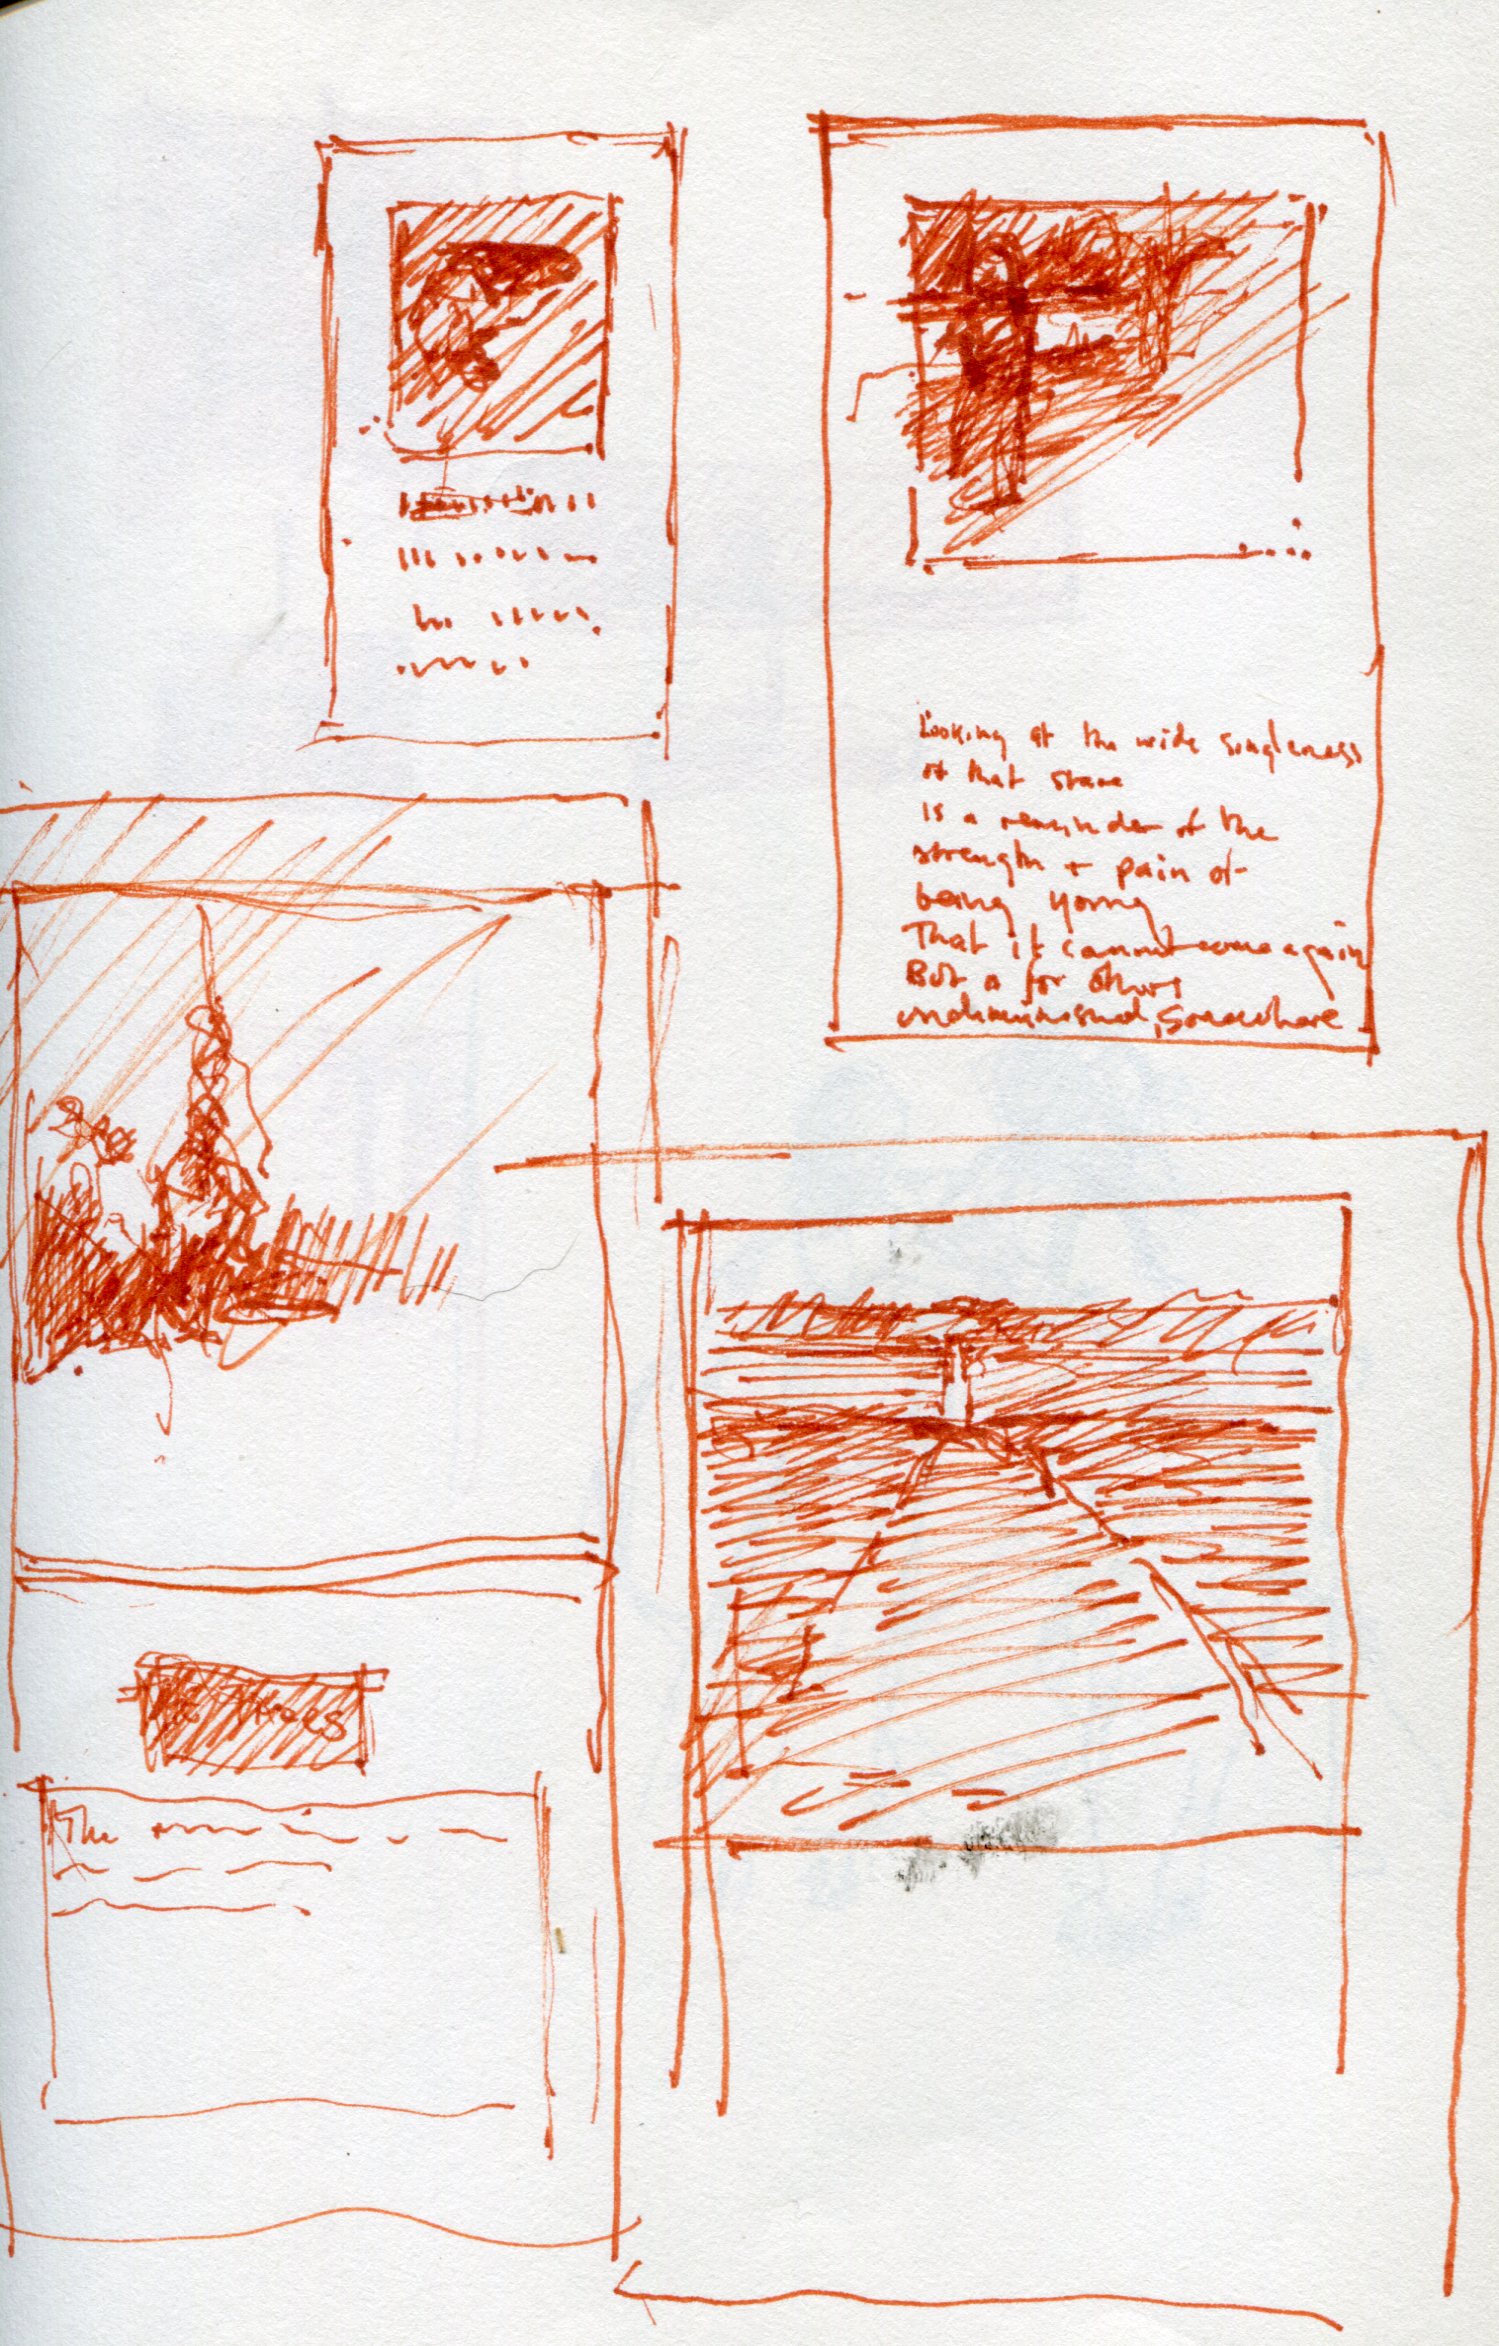 Looking at the wide singleness
of that stare
is a reminder of the
strength + pain of
being young
That it cannot come again
But is for others
undiminished, somewhere
Trees
The